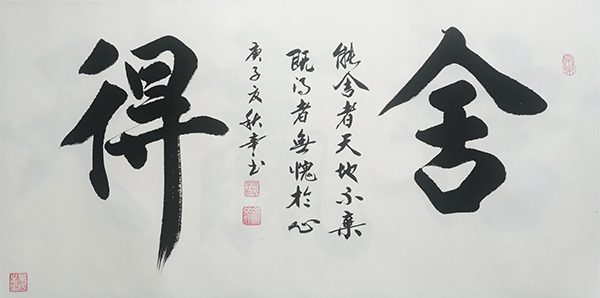 舍
能舍者天地不棄
既得者無愧於心
庚子夏秋书
得